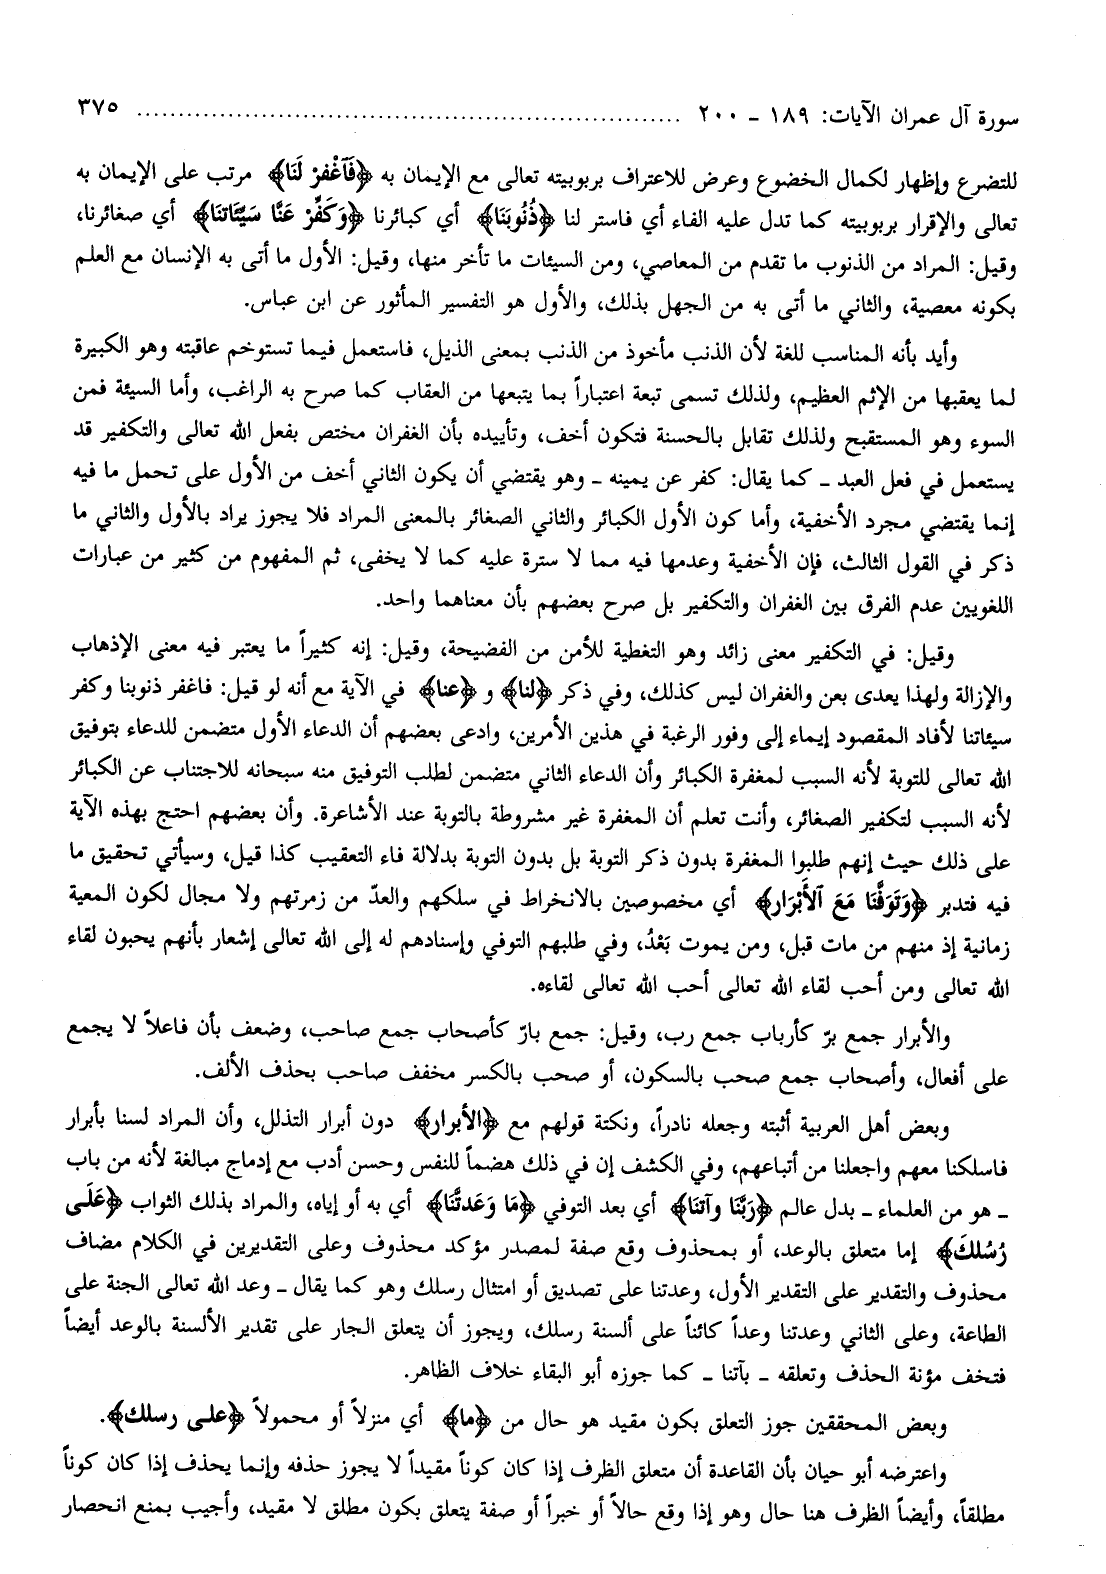 سورة آل عمران الآيات: ١٨٩ ـ ٢٠٠ ........................................................................... ٣٧٥
للتضرع وإظهار لكمال الخضوع وعرض للاعتراف بربوبيته تعالى مع الإيمان به ﴿فَٱغْفِرْ لَنَا﴾ مرتب على الإيمان به
تعالى والإقرار بربوبيته كما تدل عليه الفاء أي فاستر لنا ﴿ذُنُوبَنَا﴾ أي كبائرنا ﴿وَكَفِّرْ عَنَّا سَيِّئَاتِنَا﴾ أي صغائرنا،
وقيل: المراد من الذنوب ما تقدم من المعاصي، ومن السيئات ما تأخر منها، وقيل: الأول ما أتى به الإنسان مع العلم
بكونه معصية، والثاني ما أتى به من الجهل بذلك، والأول هو التفسير المأثور عن ابن عباس.
وأيد بأنه المناسب للغة لأن الذنب مأخوذ من الذنب بمعنى الذيل، فاستعمل فيما تستوخم عاقبته وهو الكبيرة
لما يعقبها من الإثم العظيم، ولذلك تسمى تبعة اعتباراً بما يتبعها من العقاب كما صرح به الراغب، وأما السيئة فمن
السوء وهو المستقبح ولذلك تقابل بالحسنة فتكون أخف، وتأييده بأن الغفران مختص بفعل الله تعالى والتكفير قد
يستعمل في فعل العبد ـ كما يقال: كفر عن يمينه ـ وهو يقتضي أن يكون الثاني أخف من الأول على تحمل ما فيه
إنما يقتضي مجرد الأخفية، وأما كون الأول الكبائر والثاني الصغائر بالمعنى المراد فلا يجوز يراد بالأول والثاني ما
ذكر في القول الثالث، فإن الأخفية وعدمها فيه مما لا سترة عليه كما لا يخفى، ثم المفهوم من كثير من عبارات
اللغويين عدم الفرق بين الغفران والتكفير بل صرح بعضهم بأن معناهما واحد.
وقيل: في التكفير معنى زائد وهو التغطية للأمن من الفضيحة، وقيل: إنه كثيراً ما يعتبر فيه معنى الإذهاب
والإزالة ولهذا يعدى بعن والغفران ليس كذلك، وفي ذكر ﴿لنا﴾ و ﴿عنا﴾ في الآية مع أنه لو قيل: فاغفر ذنوبنا وكفر
سيئاتنا لأفاد المقصود إيماء إلى وفور الرغبة في هذين الأمرين، وادعى بعضهم أن الدعاء الأول متضمن للدعاء بتوفيق
الله تعالى للتوبة لأنه السبب لمغفرة الكبائر وأن الدعاء الثاني متضمن لطلب التوفيق منه سبحانه للاجتناب عن الكبائر
لأنه السبب لتكفير الصغائر، وأنت تعلم أن المغفرة غير مشروطة بالتوبة عند الأشاعرة. وأن بعضهم احتج بهذه الآية
على ذلك حيث إنهم طلبوا المغفرة بدون ذكر التوبة بل بدون التوبة بدلالة فاء التعقيب كذا قيل، وسيأتي تحقيق ما
فيه فتدبر ﴿وَتَوَفَّنَا مَعَ ٱلأَبْرَارِ﴾ أي مخصوصين بالانخراط في سلكهم والعدّ من زمرتهم ولا مجال لكون المعية
زمانية إذ منهم من مات قبل، ومن يموت بَعْدُ، وفي طلبهم التوفي وإسنادهم له إلى الله تعالى إشعار بأنهم يحبون لقاء
الله تعالى ومن أحب لقاء الله تعالى أحب الله تعالى لقاءه.
والأبرار جمع برّ كأرباب جمع رب، وقيل: جمع بارّ كأصحاب جمع صاحب، وضعف بأن فاعلاً لا يجمع
على أفعال، وأصحاب جمع صحب بالسكون، أو صحب بالكسر مخفف صاحب بحذف الألف.
وبعض أهل العربية أثبته وجعله نادراً، ونكتة قولهم مع ﴿الأبرار﴾ دون أبرار التذلل، وأن المراد لسنا بأبرار
فاسلكنا معهم واجعلنا من أتباعهم، وفي الكشف إن في ذلك هضماً للنفس وحسن أدب مع إدماج مبالغة لأنه من باب
ـ هو من العلماء ـ بدل عالم ﴿رَبَّنَا وآتنَا﴾ أي بعد التوفي ﴿مَا وَعَدتَّنَا﴾ أي به أو إياه، والمراد بذلك الثواب ﴿عَلَى
رُسُلِكَ﴾ إما متعلق بالوعد، أو بمحذوف وقع صفة لمصدر مؤكد محذوف وعلى التقديرين في الكلام مضاف
محذوف والتقدير على التقدير الأول، وعدتنا على تصديق أو امتثال رسلك وهو كما يقال ـ وعد الله تعالى الجنة على
الطاعة، وعلى الثاني وعدتنا وعداً كائناً على ألسنة رسلك، ويجوز أن يتعلق الجار على تقدير الألسنة بالوعد أيضاً
فتخف مؤنة الحذف وتعلقه ـ بآتنا ـ كما جوزه أبو البقاء خلاف الظاهر.
وبعض المحققين جوز التعلق بكون مقيد هو حال من ﴿ما﴾ أي منزلاً أو محمولاً ﴿على رسلك﴾.
واعترضه أبو حيان بأن القاعدة أن متعلق الظرف إذا كان كوناً مقيداً لا يجوز حذفه وإنما يحذف إذا كان كوناً
مطلقاً، وأيضاً الظرف هنا حال وهو إذا وقع حالاً أو خبراً أو صفة يتعلق بكون مطلق لا مقيد، وأجيب بمنع انحصار